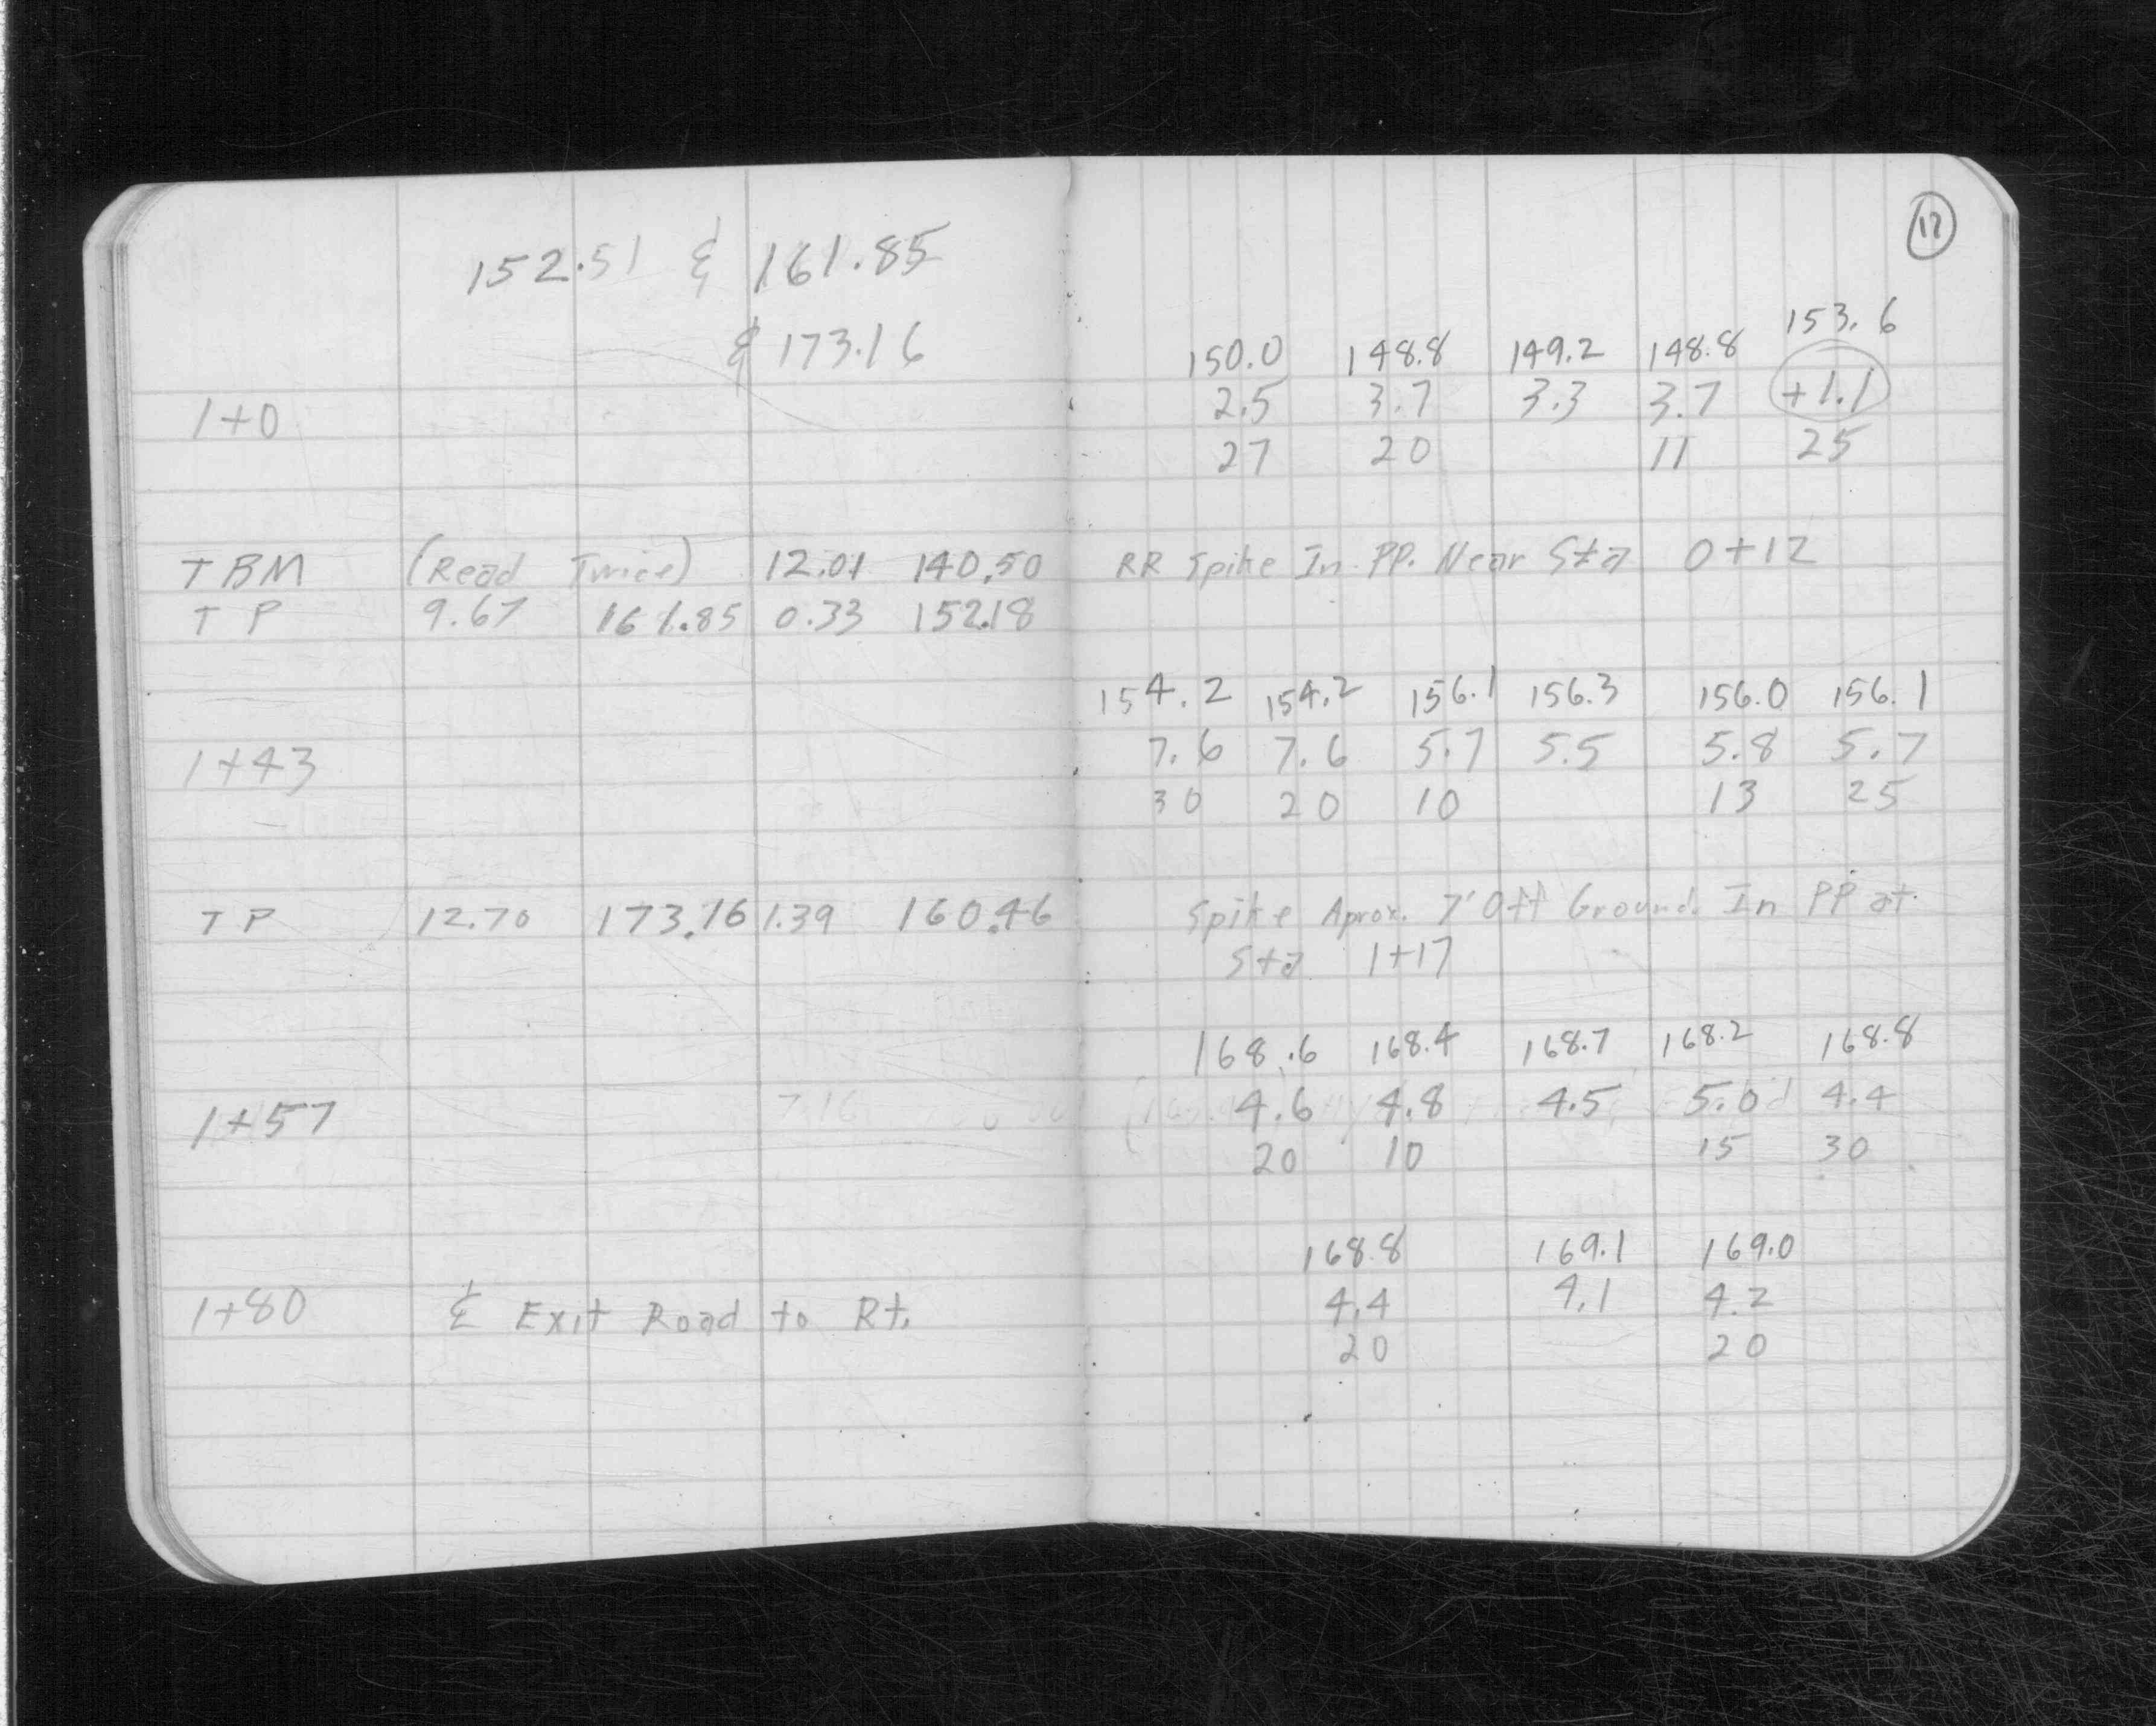 152.51 & 161.85
& 173.16
1+0
TBM (Read Twice) 12.01 140.50
TP 9.67 161.85 0.33 152.18
1+43
TP 12.70 173.16 1.39 160.46
1+57
1+80 & Exit Road to Rt.
12
150.0 148.8 149.2 148.8 153.6
2.5 3.7 3.3 3.7 +1.1
27 20 11 25
RR Spike In PP. Near Sta 0+12
154.2 154.2 156.1 156.3 156.0 156.1
7.6 7.6 5.7 5.5 5.8 5.7
30 20 10 13 25
Spike Aprox. 7' Off Ground. In PP at.
Sta 1+17
168.6 168.4 168.7 168.2 168.8
4.6 4.8 4.5 5.0 4.4
20 10 15 30
168.8 169.1 169.0
4.4 4.1 4.2
20 20